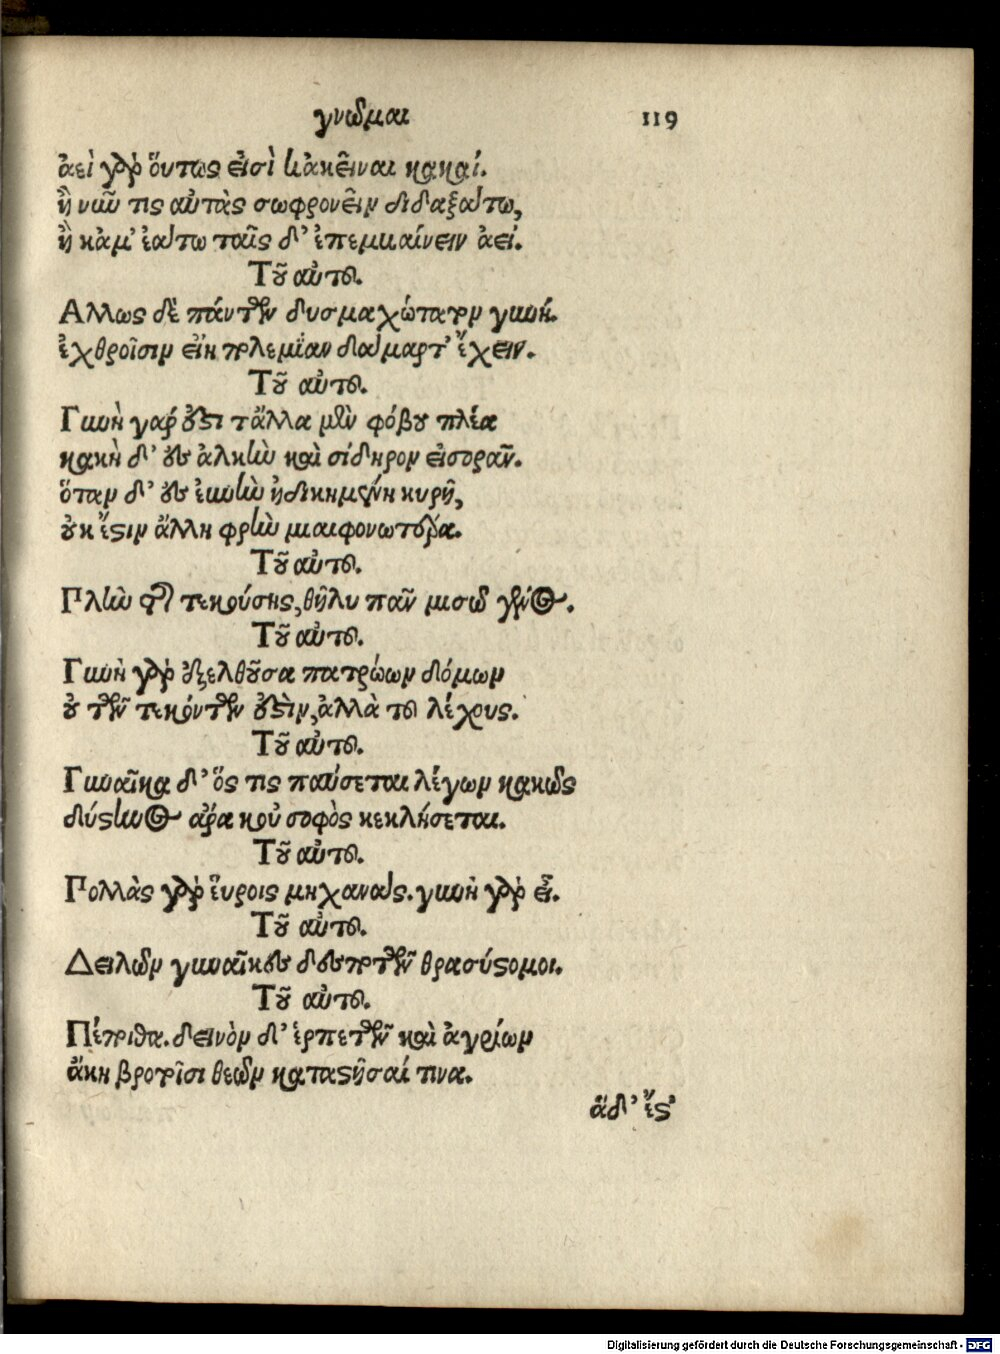 γνῶμαι 119
ἀεὶ γὰρ ὅυτως ἐισὶ κἀκεῖναι κακαί.
ἢ νῦν τις αὐτὰς σωφρονεῖν διδαξάτω,
ἢ κἀμ’ ἐάτω ταῖς δ’ ἐπεμβαίνειν ἀεί.
Τοῦ αὐτοῦ.
Αλλως δὲ πάντων δυσμαχώτατον γυνή.
ἐχθροῖσιν εἴη πολεμίαν δάμαρτ’ ἔχειν.
Τοῦ αὐτοῦ.
Γυνὴ γαρ ὅστι τἄλλα μὲν φόβου πλέα
κακὴ δ’ ἐς ἀλκὴν καὶ σίδηρον εἰσορᾶν.
ὅταν δ’ ἐς εὐνὴν ἠδικημένη κυρῇ,
οὐκ ἔστιν ἄλλη φρὴν μιαιφονωτέρα.
Τοῦ αὐτοῦ.
Πλὴν τῆς τεκούσης, θῆλυ πᾶν μισῶ γένος.
Τοῦ αὐτοῦ.
Γυνὴ γὰρ ἐξελθοῦσα πατρώων δόμων
οὐ τῶν τεκόντων ἐστὶν, ἀλλὰ τοῦ λέχους.
Τοῦ αὐτοῦ.
Γυναῖκα δ’ ὅς τις παύσεται λέγων κακῶς
δύστηνος ἄρα κοὐ σοφὸς κεκλήσεται.
Τοῦ αὐτοῦ.
Πολλὰς γὰρ εὕροις μηχανάς. γυνὴ γὰρ εἶ.
Τοῦ αὐτοῦ.
Δειλῶν γυναῖκες δεσποτῶν θρασύστομοι.
Τοῦ αὐτοῦ.
δεινὸν δ’ ἑρπετῶν καὶ ἀγρίων
ἄκη βροτοῖσι θεῶν καταστῆσαί τινα.
ἃ δ’ ἔστ’
Digitalisierung gefördert durch die Deutsche Forschungsgemeinschaft - DFG